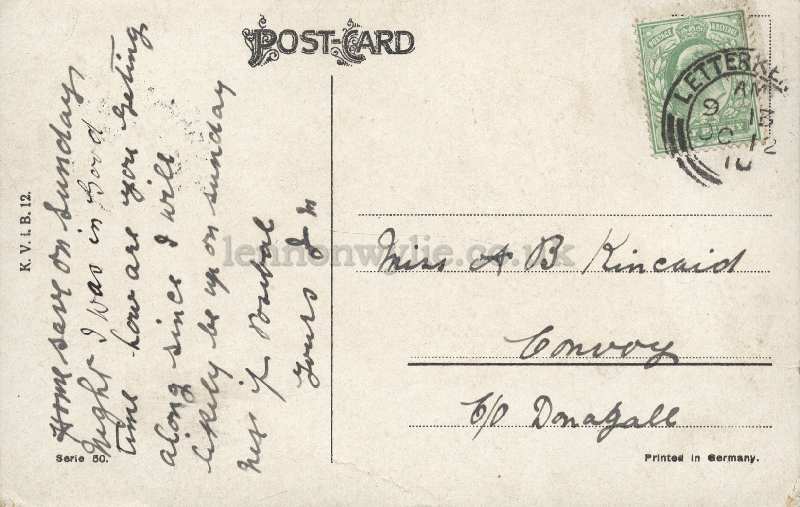 POST-CARD
Home save on Sunday
Night I was in Good
time how are you geting
along since I will
likely be up on sunday
next if Posibal
Yours J M
K. V. i. B. 12.
Serie 50.
POSTAGE & REVENUE
LETTERKE
9 AM
OC 12
10
lennonwylie.co.uk
Miss A B Kincaid
Convoy
C/O Donagall
Printed in Germany.